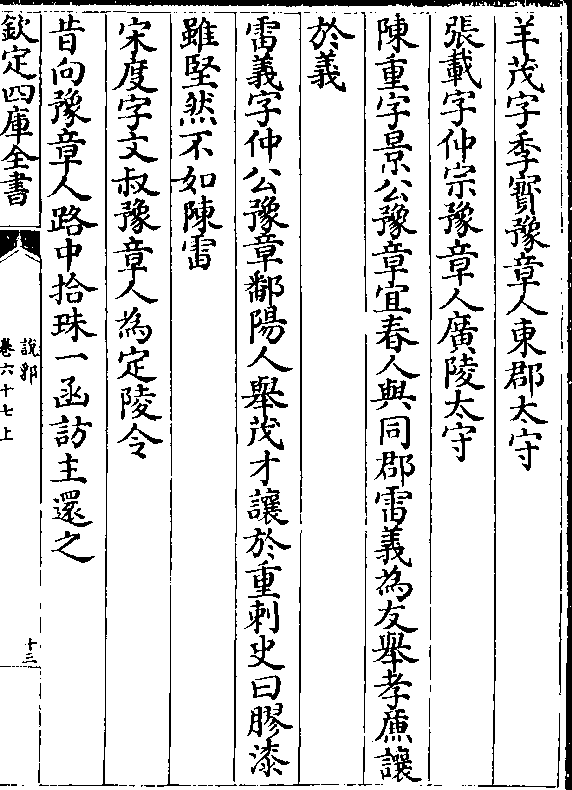 羊茂字季寳豫章人東郡太守
張載字仲宗豫章人廣陵太守
陳重字景公豫章宜春人與同郡雷義為友舉孝廉讓
於義
雷義字仲公豫章鄱陽人舉茂才讓於重刺史曰膠漆
雖堅然不如陳雷
宋度字文叔豫章人為定陵令
昔向豫章人路中拾珠一函訪主還之
欽定四庫全書
說郛
卷六十七上
十三